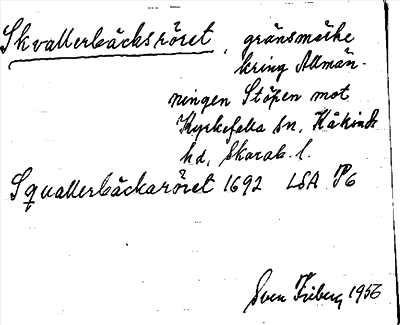 Skvallerbäcksröret, gränsmärke
kring Allmän-
ningen Stöpen mot
Kyrkefalla sn, Kåkinds
hd, Skarab. l.
Squallerbäckaröret 1692 LSA P6
Sven Friberg 1956